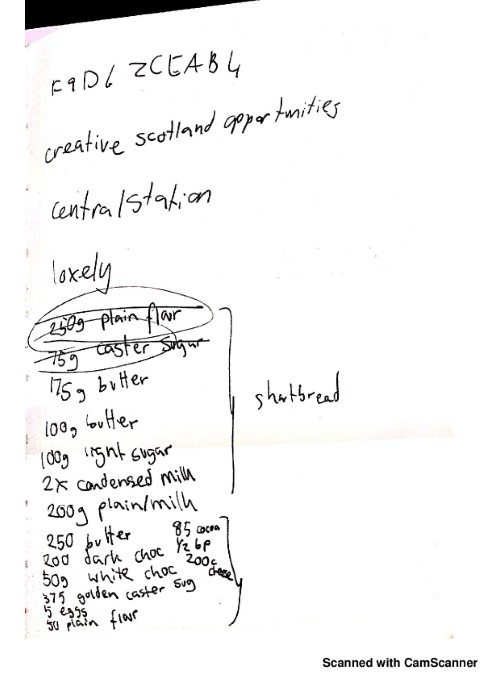 F9D6 2CEAB4
creative scotland opportunities
central station
loxely
250g plain flour
75g caster sugar
175g butter
100g butter
100g light sugar
2x condensed milk
200g plain/milk
shortbread
250 butter 85 cocoa
200 dark choc 1/2 bp
50g white choc 200c
375 golden caster sug
5 eggs
50 plain flour
Scanned with CamScanner